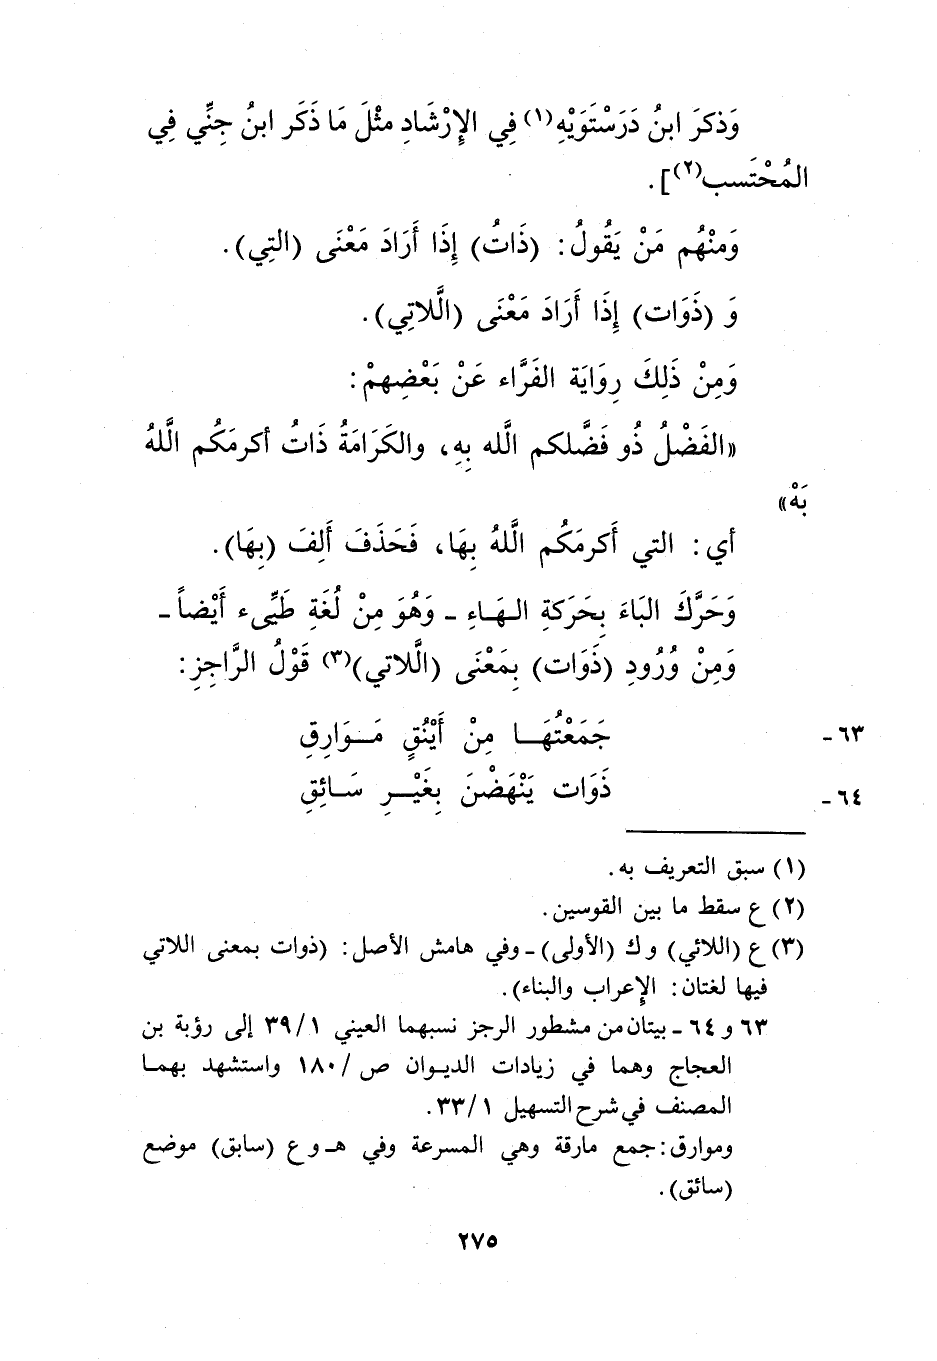 وَذكرَ ابنُ دَرَسْتَوَيْهِ(١) فِي الإِرْشَادِ مثْلَ مَا ذَكَر ابنُ جِنِّي فِي
المُحْتَسب(٢)].
وَمنْهُم مَنْ يَقُولُ: (ذَاتُ) إِذَا أَرَادَ مَعْنَى (التِي).
وَ (ذَوَات) إِذَا أَرَادَ مَعْنَى (الَّلاتِي).
وَمِنْ ذَلِكَ رِوَايَة الفَرَّاء عَنْ بَعْضِهمْ:
«الفَضْلُ ذُو فَضَّلكم الَّله بِهِ، والكَرَامَةُ ذَاتُ أكرمَكُم الَّلهُ
بَهْ»
أي: التي أَكرمَكُم الَّلهُ بِهَا، فَحَذَفَ أَلِفَ (بِهَا).
وَحَرَّكَ البَاءَ بِحَرَكةِ الهَاءِ ـ وَهُوَ مِنْ لُغَةِ طَيِّىء أَيْضاً ـ
وَمِنْ وُرُودِ (ذَوَات) بِمَعْنَى (الَّلاتي)(٣) قَوْلُ الرَّاجِزِ:
٦٣ـ جَمَعْتُهَا مِنْ أَيْنُقٍ مَوَارِقِ
٦٤ـ ذَوَات يَنْهَضْنَ بِغَيْرِ سَائِقِ
(١) سبق التعريف به.
(٢) ع سقط ما بين القوسين.
(٣) ع (اللائي) و ك (الأولى) ـ وفي هامش الأصل: (ذوات بمعنى اللاتي
فيها لغتان: الإعراب والبناء).
٦٣ و ٦٤ ـ بيتان من مشطور الرجز نسبهما العيني ٣٩/١ إلى رؤبة بن
العجاج وهما في زيادات الديوان ص/١٨٠ واستشهد بهما
المصنف في شرح التسهيل ٣٣/١.
وموارق: جمع مارقة وهي المسرعة وفي هـ و ع (سابق) موضع
(سائق).
٢٧٥